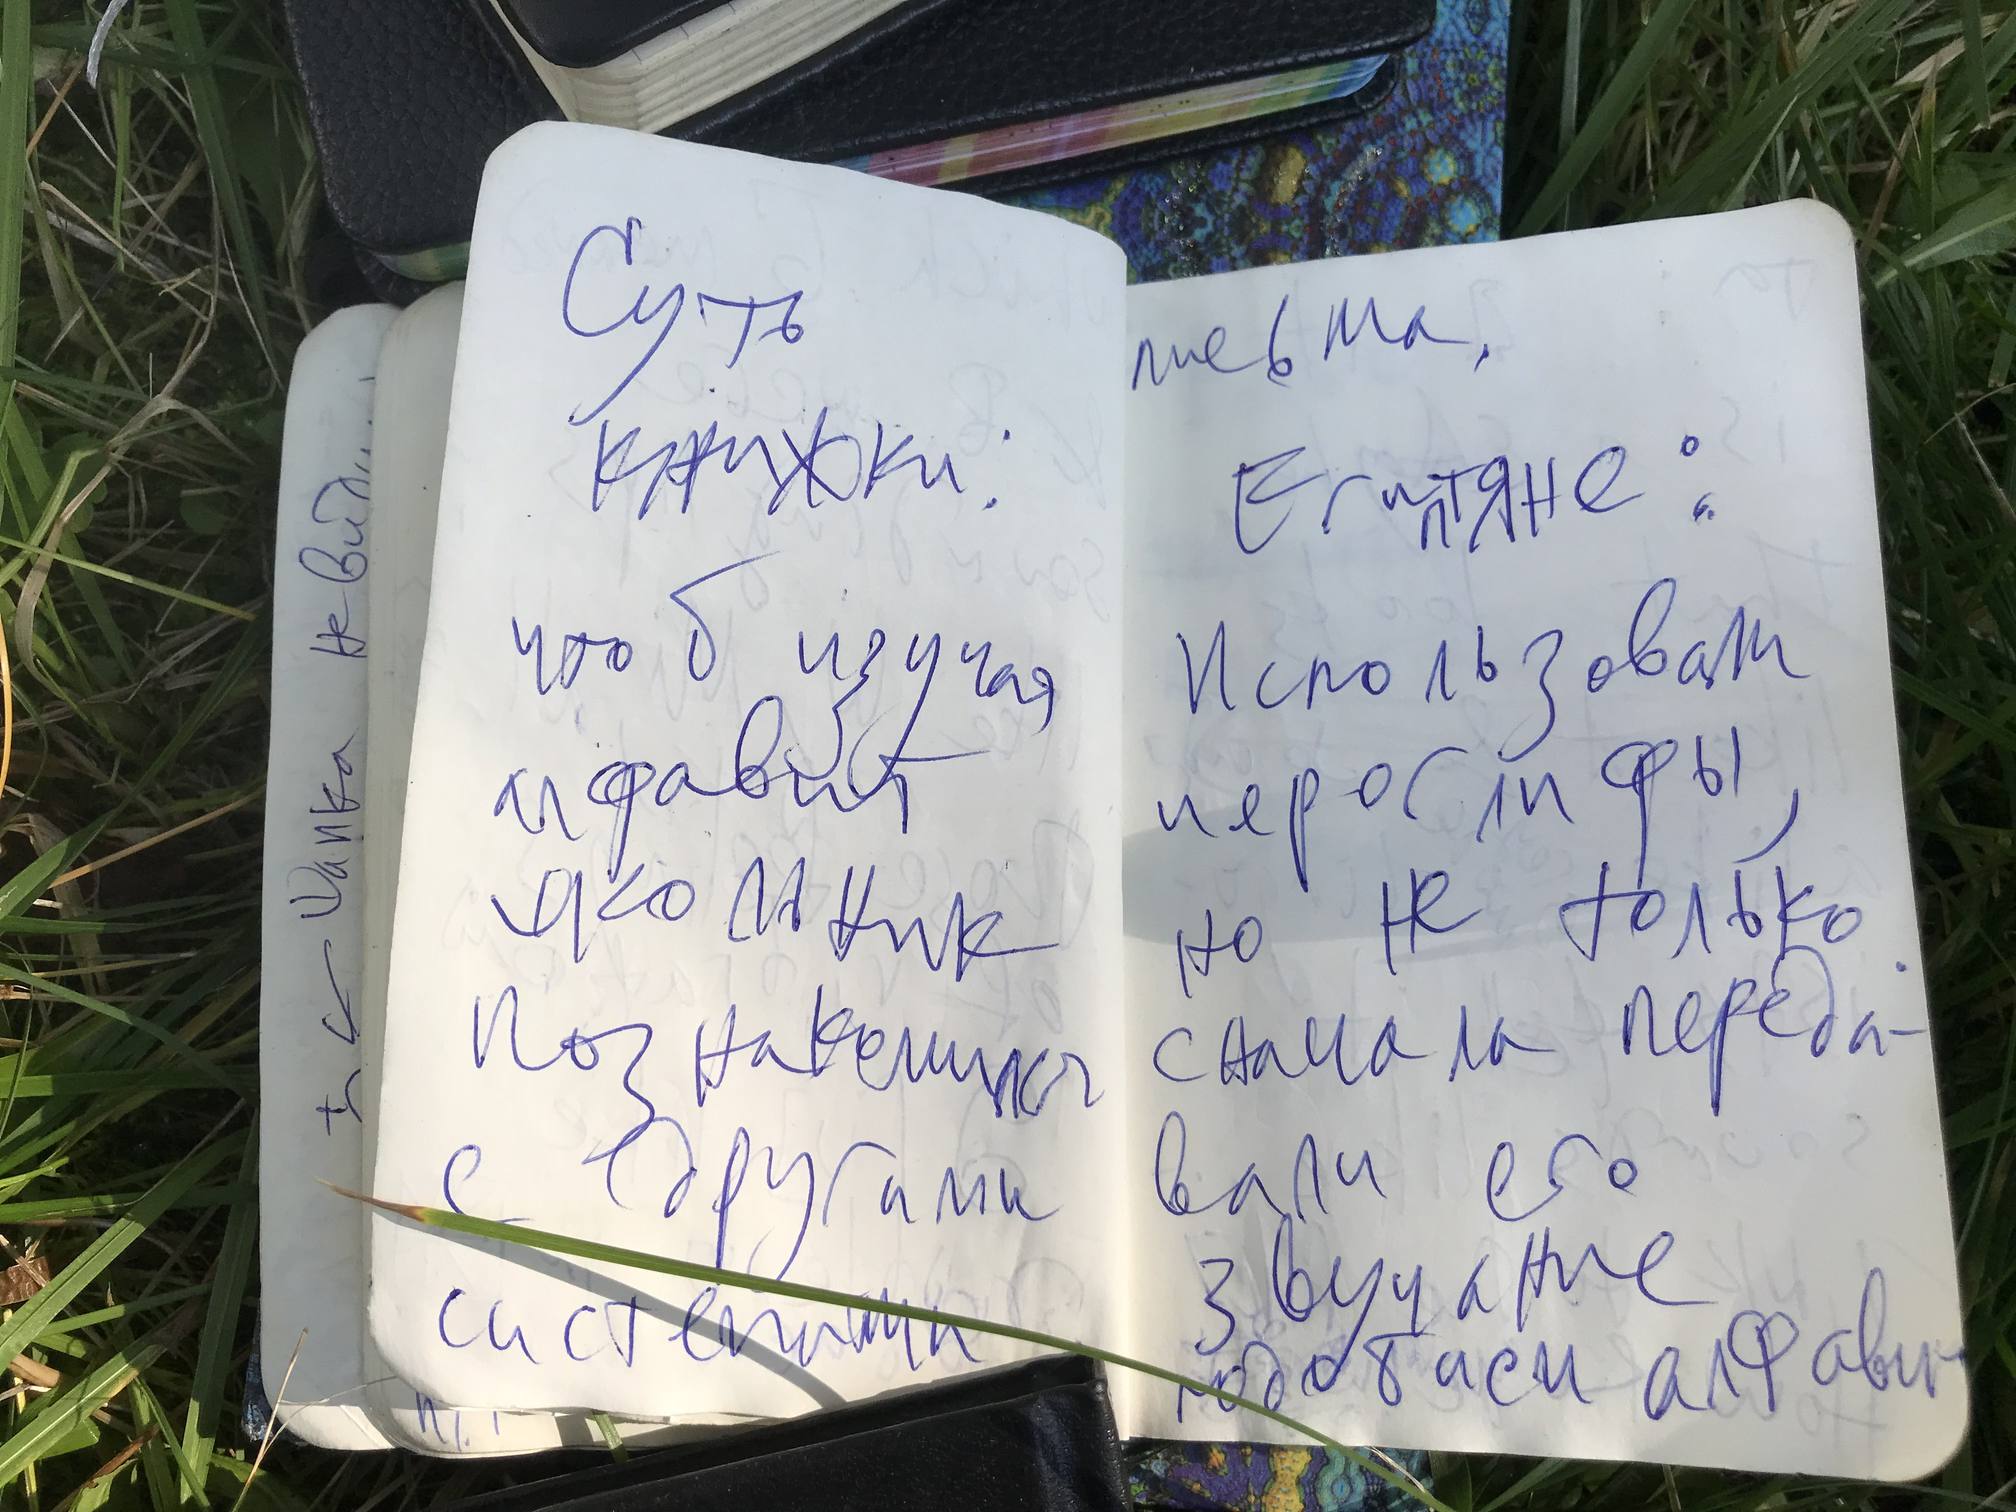 Суть
книжки:
чтоб изучая
алфавит
школьник
познакомился
с другими
системами
письма.
Египтяне:
Использовали
иероглифы,
но не только
сначала переда-
вали его
звучание
подобием алфави-
Шапка не вид